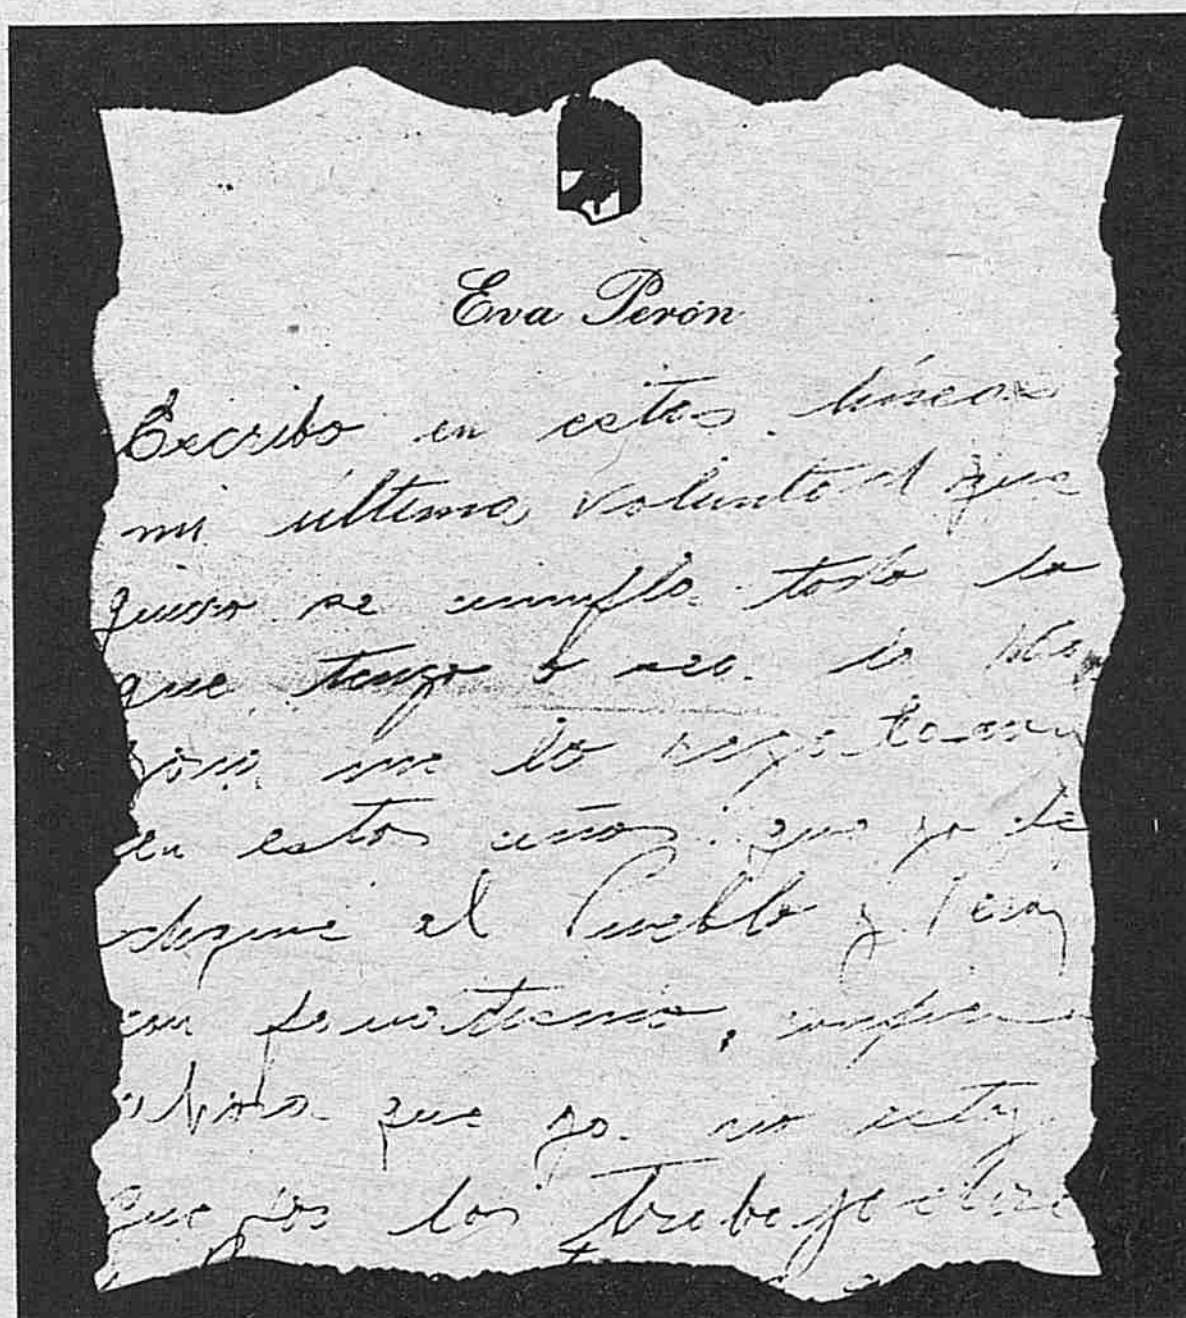 Eva Perón
Escribo en estas líneas
mi última voluntad que
quiero se cumpla todo lo
que tengo
me lo regalaron
en estos años que yo de
diqué al Pueblo y Perón
con fanatismo,
ahora que yo no estoy
que los trabajadores